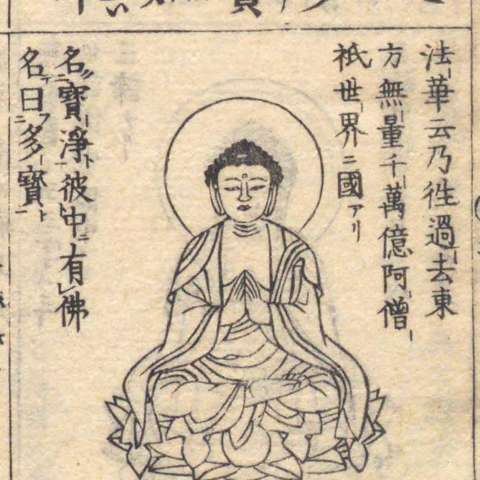 法華云乃徃過去東
方無量千萬億阿僧
祇世界ニ國アリ
名寶淨ト彼中ニ有佛
名曰多寶ト